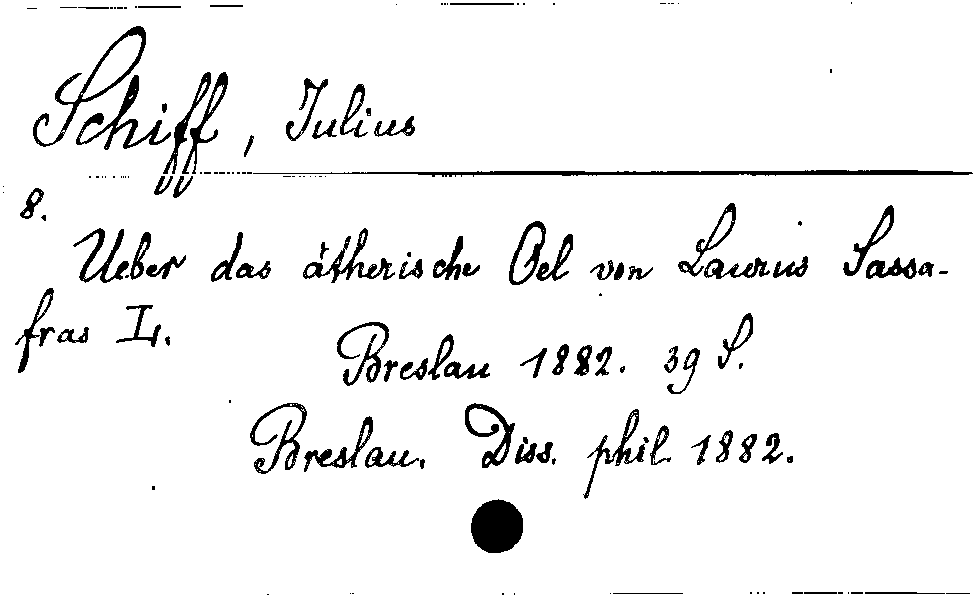 Schiff, Julius
8.
Ueber das ätherische Oel von Laurus Sassa-
fras L.
Breslau 1882. 39 S.
Breslau. Diss. phil. 1882.